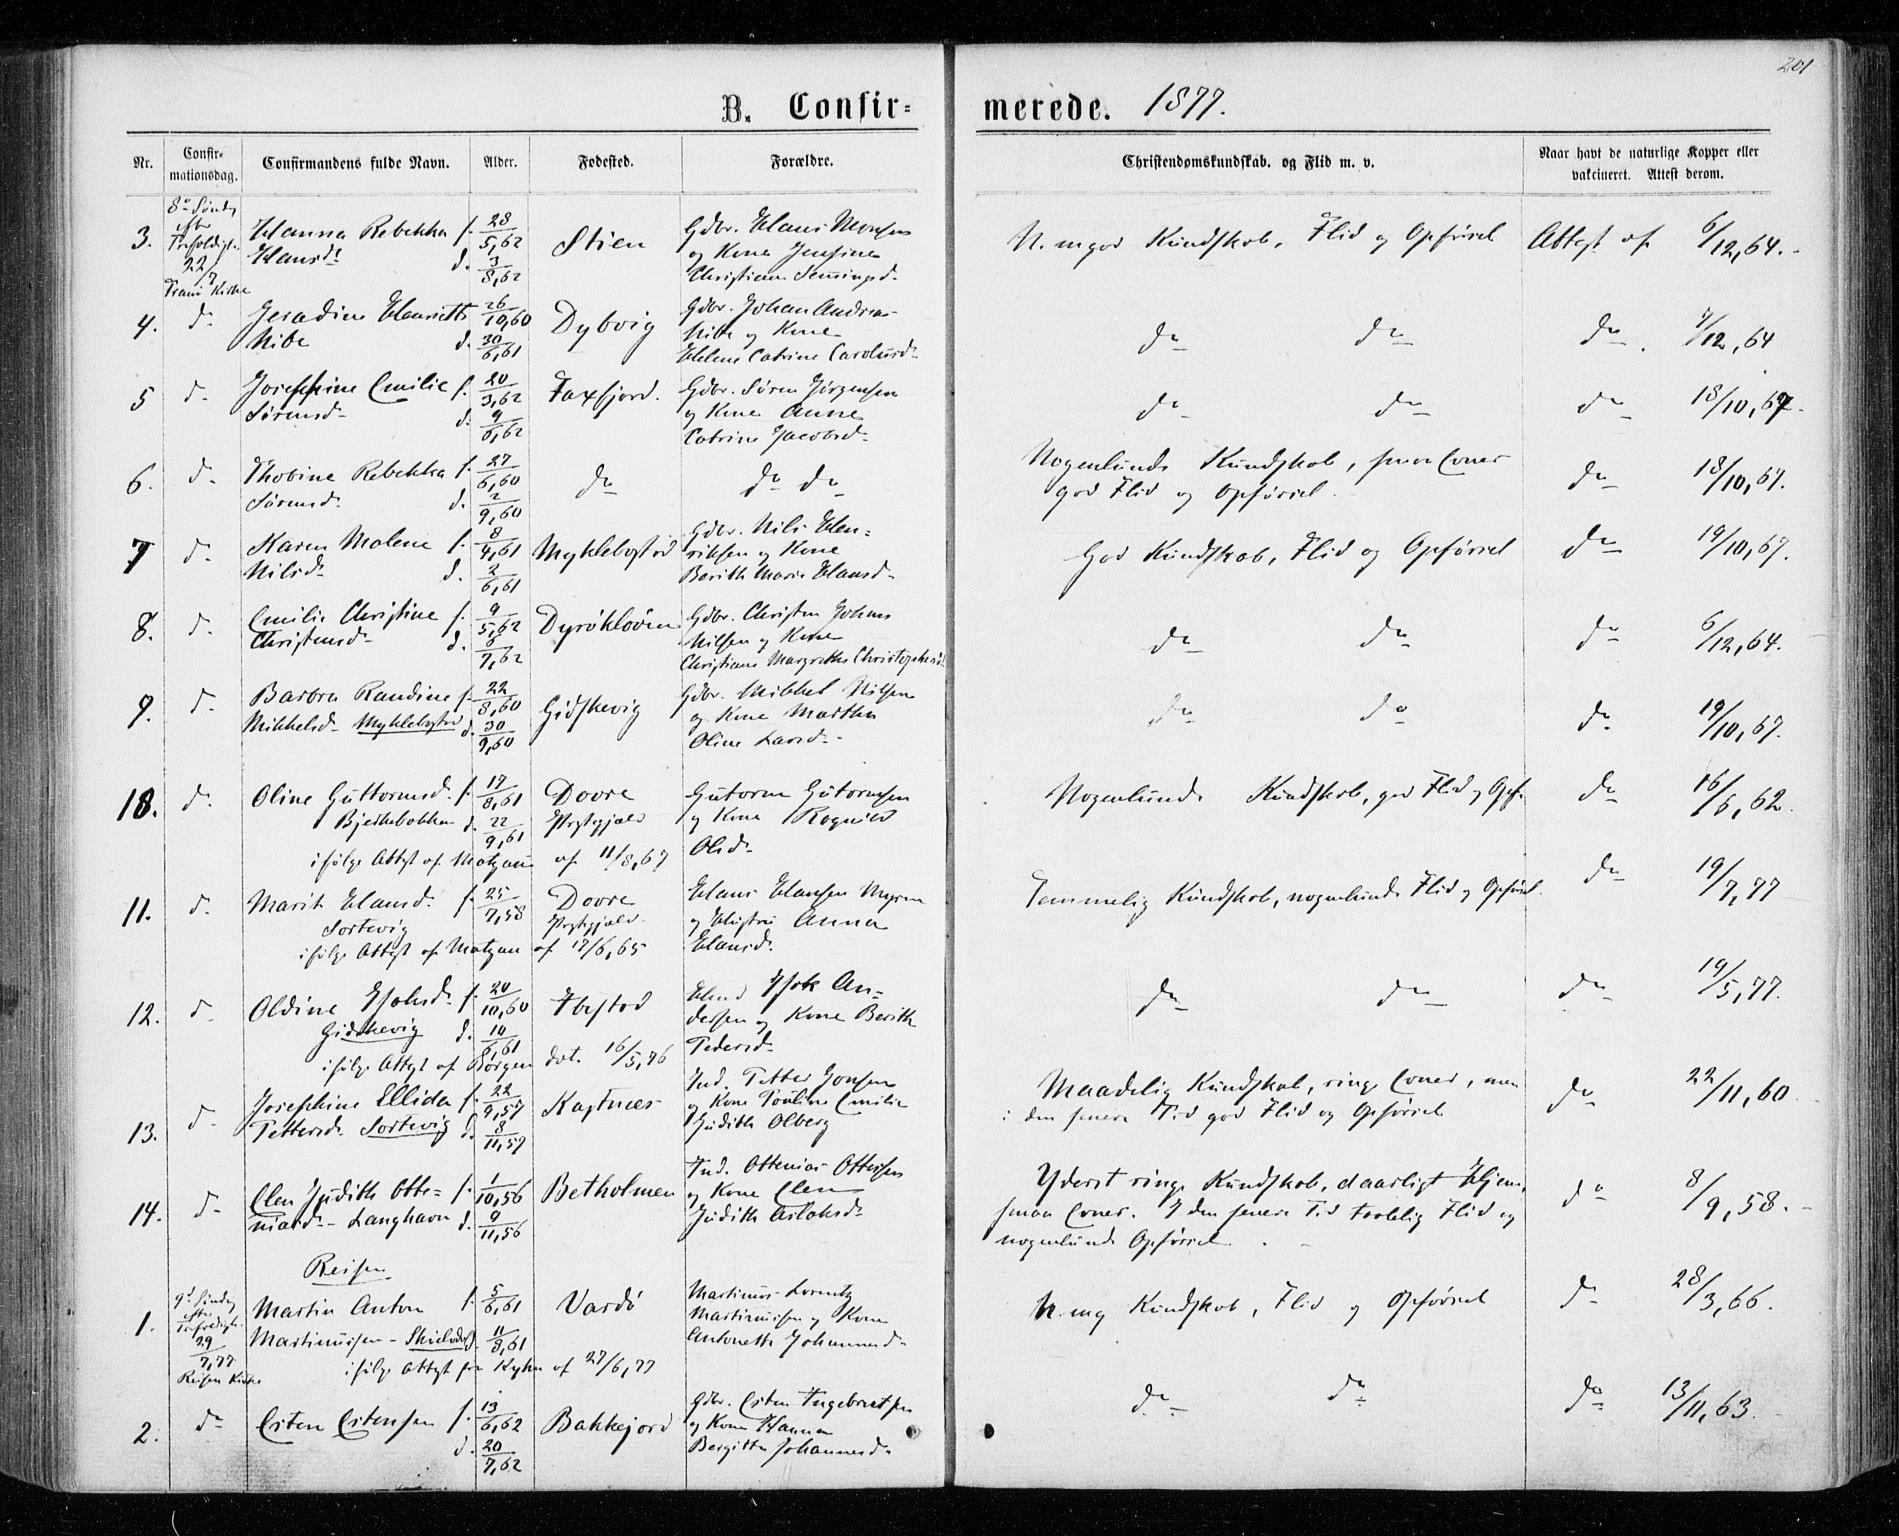 201
B. Confirmerede. 1877.
Nr. Confirmationsdag. Confirmandens fulde Navn. Alder. Fødested. Forældre. Christendomskundskab. og Flid m. v. Naar havt de naturlige Kopper eller vakcineret. Attest derom.
3. 8de Søndag efter Trefoldigh. 22/7 Tranø Kirke
Hanna Rebekka Hansd. f. 28/5,62 d. 3/8,62
Stien
Gdbr. Hans Monsen
og Kone Jensine
Christian
N. mgod Kundskab, Flid og Opførsel
Attest af 6/12,64.
4. do
Jeradine Henriette Nibe f. 26/10,60 d. 30/6,61
Dybvig
Gdbr. Johan Andreas
Nibe og Kone
Helene Catrine Carolusd.
do do do 7/12,64
5 do
Josephine Emilie Sørensd. f. 20/3,62 d. 9/6,62
Faxfjord.
Gdbr. Søren Jørgensen
og Kone Anne
Catrine Jacobsd.
do do do 18/10,67.
6. do
Thobine Rebekka Sørensd. f. 27/6,60 d. 2/9,60
do
do do
Nogenlunde Kundskab, smaa Evner
god Flid og Opførsel.
do 18/10,67.
7 do
Karen Malene Nilsd. f. 8/4,61 d. 2/6,61
Myklebostad
Gdbr. Nils Hen-
riksen og Kone
Berith Marie Hansd.
God Kundskab, Flid og Opførsel
do 19/10,67.
8. do
Emilie Christine Christensd. f. 9/5,62 d. 6/7,62
Dyrökloven
Gdbr. Christen Johans
Nilsen og Kone
Christiane Margrethe Christophersd.
do do do 6/12,64.
9. do
Barbra Randine f. 22/8,60
Mikkelsd. Myklebostad d. 30/9,60
Gidskevig
Gdbr. Mikkel Nilsen
og Kone Martha
Oline Larsd.
do do do 19/10,67.
10. do
Oline Guttormsd. f. 17/8,61
Bjerkebakken d. 22/9,61
Dovre
Prstgjæld
Gutorm Gutormsen
og Kone Rognild
Olsd.
ifølge Attest af Motzau af 11/8,67
Nogenlunde Kundskab, god Flid og Opf.
do 16/6,62.
11. do
Marit Hansd. f. 25/7,58
Sørtevig
Dovre
Prstgjæld.
Hans Hansen Myren
og Hustru Anna
Hansd.
ifølge Attest af Motzau af 17/6,65
Temmelig Kundskab, nogenlunde Flid og Opførsel.
do 19/7,77
12. do
Oldine Hjohsd. f. 20/10,60
Gidskevig d. 10/6,61
Ibestad
og Kone Berith
Pedersd.
ifølge Attest af Børgen dat. 16/5,76
do do do 19/5,77.
13. do
Josephine Ellida f. 22/9,57
Pettersd. Sørtevig d. 8/11,57
Kastnæs
Ind. Petter Jonsen
og Kone Pouline Emilie
Judith Olberg
Maadelig Kundskab, ringe Evner, men
i den senere Tid god Flid og Opførsel
do 22/11,60.
14. do
Elen Judith Otte- f. 1/10,56
niasd. - Langhavn d. 9/11,56
Betholmen
Ind. Ottenias Ottesen
og Kone Elen
Judith Aslaksd.
Yderst ringe Kundskab, daarligt Hjem,
smaa Evner. I den senere Tid taalelig Flid og
nogenlunde Opførsel.
do 8/9,58.
Reisen
1. 9de Søndag efter Trefoldigh. 29/7,77. Reisen Kirke
Martin Anton f. 5/6,61
Martinusen - 11/8,61
Vardö
Martinus Lorentz
Martinusen og Kone
Antonette Johannesd.
ifølge Attest fra af 27/6,77
N. mg Kundskab, Flid og Opførsel
do 28/3,66.
2. do
Esten Estensen f. 13/6,62 d. 20/7,62
Bakkejord
Gdbr. Esten Ingebrigtsen
og Kone Hanna
Bergitta Johannesd.
do do do 13/11,63.